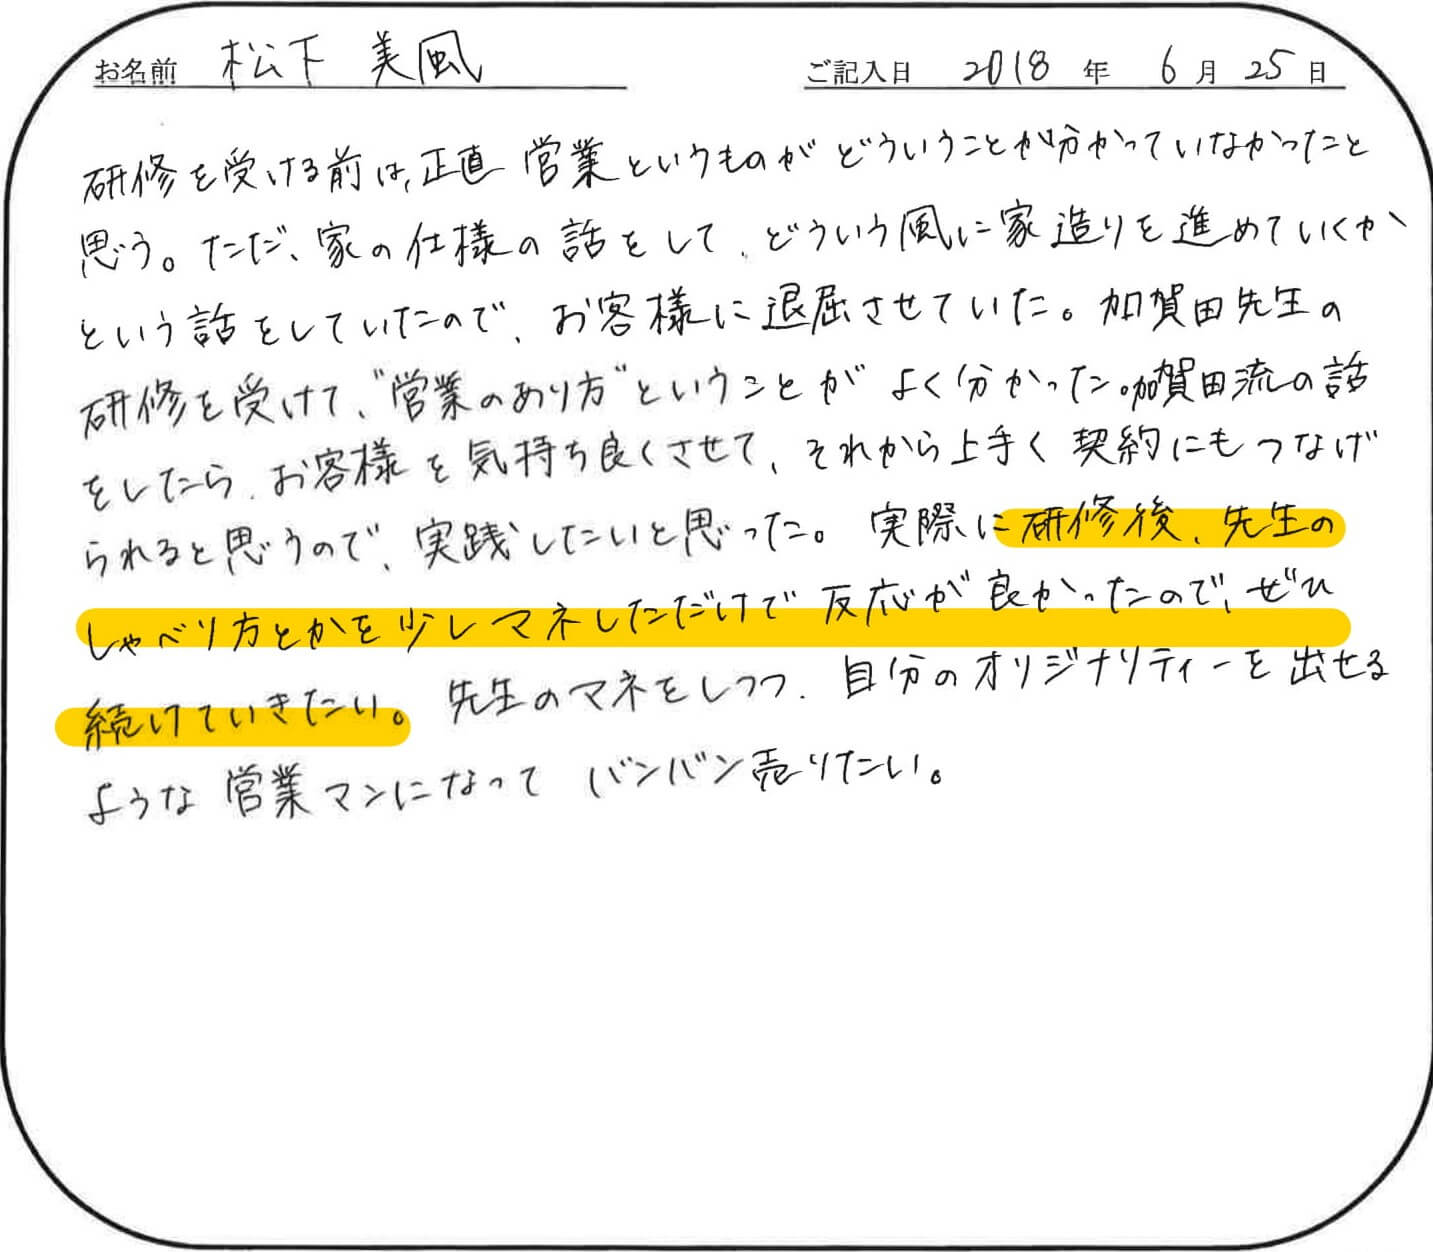 お名前 松下 美風 ご記入日 2018 年 6 月 25 日
研修を受ける前は、正直 営業というものが どういうことが分かっていなかったと
思う。ただ、家の仕様の話をして、どういう風に家造りを進めていくか
という話をしていたので、お客様に退屈させていた。加賀田先生の
研修を受けて、"営業のあり方"ということが よく分かった。加賀田流の話
をしたら、お客様を気持ち良くさせて、それから上手く契約にもつなげ
られると思うので、実践したいと思った。 実際に研修後、先生の
しゃべり方とかを少しマネしただけで反応が良かったので、ぜひ
続けていきたい。 先生のマネをしつつ、自分のオリジナリティーを出せる
ような営業マンになって バンバン売りたい。